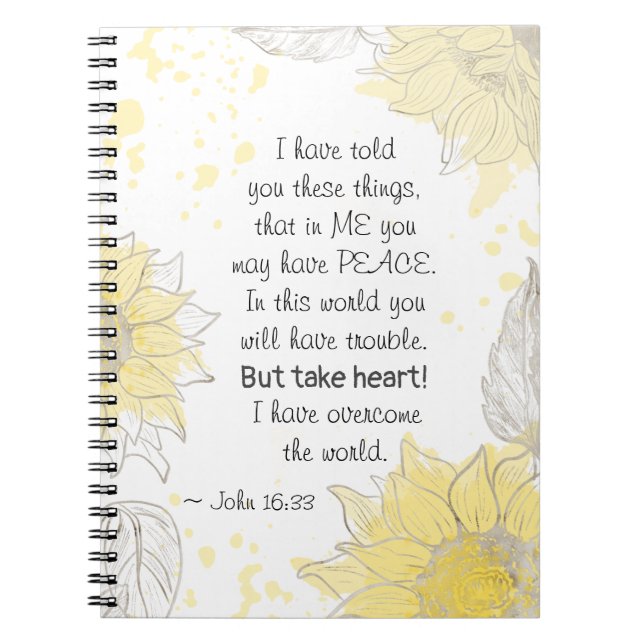 I have told
you these things,
that in ME you
may have PEACE.
In this world you
will have trouble.
But take heart!
I have overcome
the world.
~ John 16:33